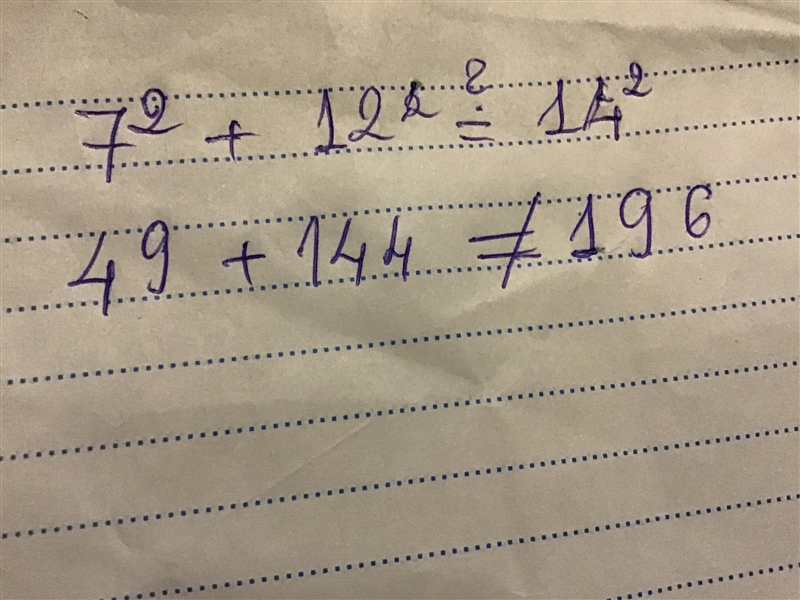 7² + 12² ≟ 14²
49 + 144 ≠ 196